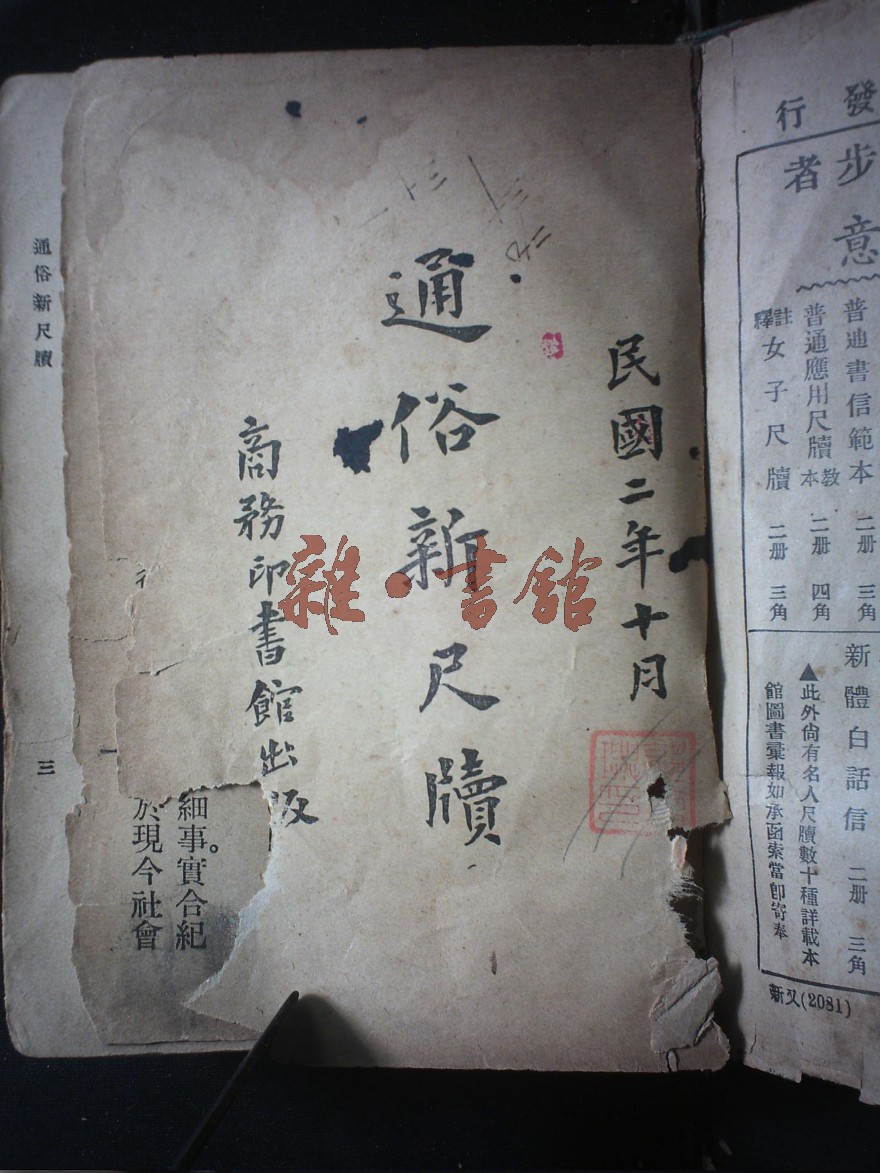 發
行
步
者
意
普通書信範本 二册 三角
普通應用尺牘教本 二册 四角
註釋女子尺牘 二册 三角
新體白話信 二册 三角
▲此外尙有名人尺牘數十種詳載本
館圖書彙報如承函索當卽寄奉
新又(2081)
民國二年十月
通俗新尺牘
商務印書館出版
雜·書館
細事。實合紀
於現今社會
一
通俗新尺牘
三